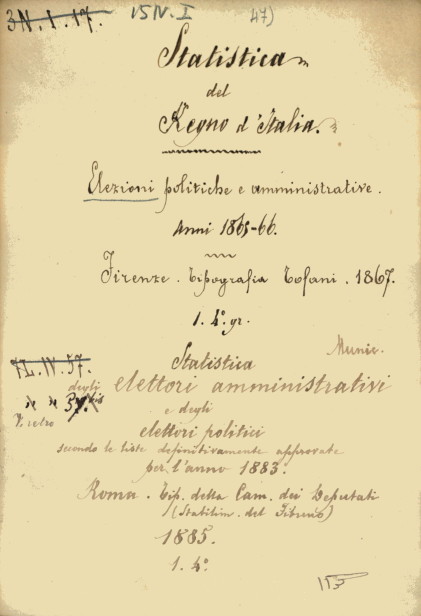 3N. 1. 17. 15 IV. I 47)
Statistica
del
Regno d'Italia.
Elezioni politiche e amministrative.
Anni 1865-66.
Firenze. Tipografia Tofani. 1867.
1. 4º gr.
Munic.
7L. IV. 57.
Statistica
degli elettori amministrativi
V. retro
e degli
elettori politici
secondo le liste definitivamente approvate
per l'anno 1883.
Roma. Tip. della Cam. dei Deputati
(Stabilim. del Fibreno)
1885.
1. 4º.